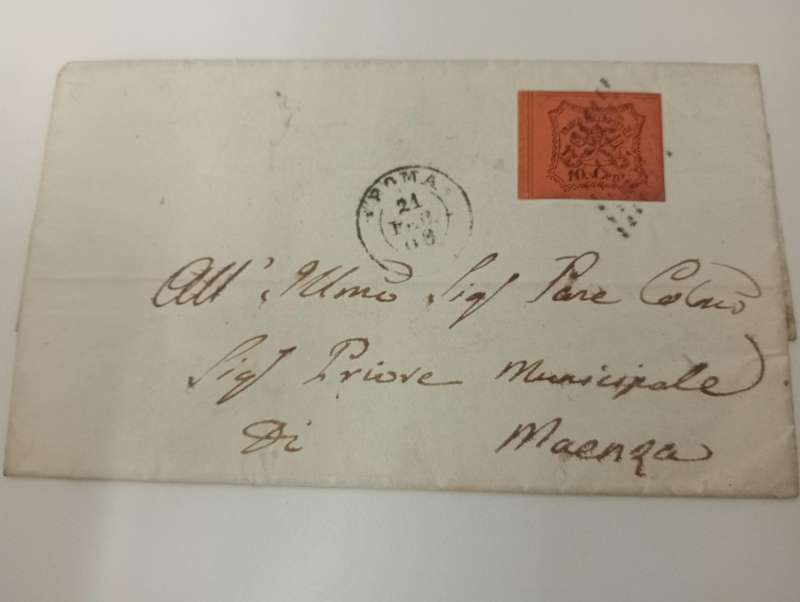 10. Cent
ROMA
21
FEB
68
All' Illmo Sig Pne Colmo
Sig Priore Municipale
Di Maenza